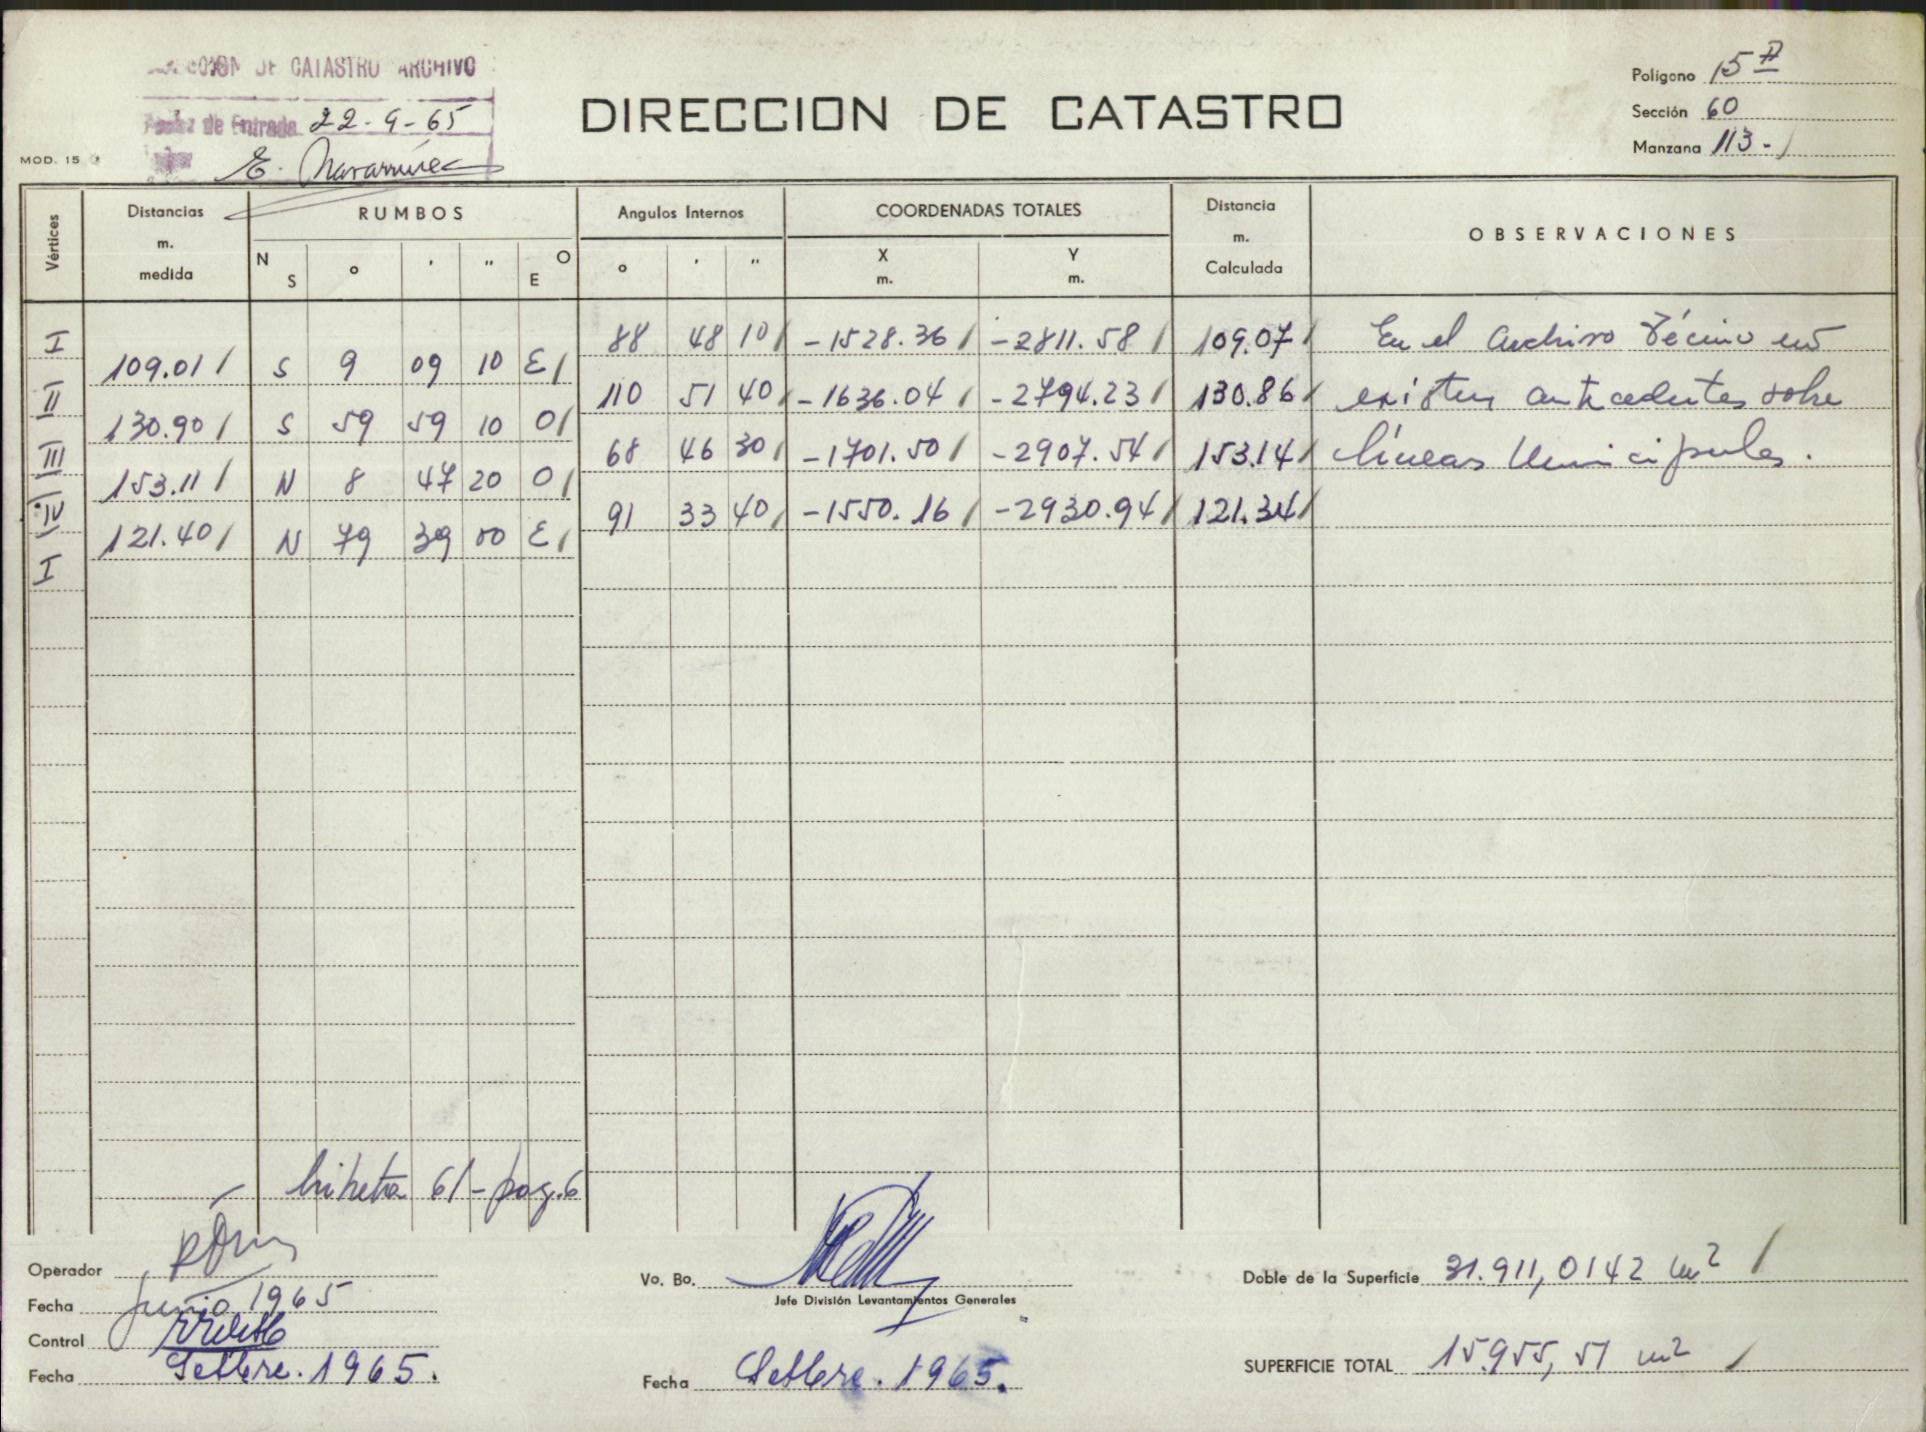 DE CATASTRO ARCHIVO
de Entrada 22-9-65
E.
MOD. 15
DIRECCION DE CATASTRO
Polígono 15
Sección 60
Manzana 113-/
Vértices
Distancias m. medida
RUMBOS
N S ° ' " O E
Angulos Internos
° ' "
COORDENADAS TOTALES
X m. Y m.
Distancia m. Calculada
OBSERVACIONES
I 88 48 10/ -1528.36/ -2811.58/ 109.07/ En el Archivo Técnico no
109.01/ S 9 09 10 E/
II 110 51 40/ -1636.04/ -2794.23/ 130.86/ existen antecedentes sobre
130.90/ S 59 59 10 O/
III 68 46 30/ -1701.50/ -2907.54/ 153.14/ líneas Municipales.
153.11/ N 8 47 20 O/
IV 91 33 40/ -1550.16/ -2930.94/ 121.34/
121.40/ N 79 39 00 E/
I
61-pag.6
Operador
Fecha Junio 1965
Control
Fecha Setbre. 1965.
Vo. Bo.
Jefe División Levantamientos Generales
Fecha Setbre. 1965.
Doble de la Superficie 31.911,0142 m² /
SUPERFICIE TOTAL 15.955,51 m² /